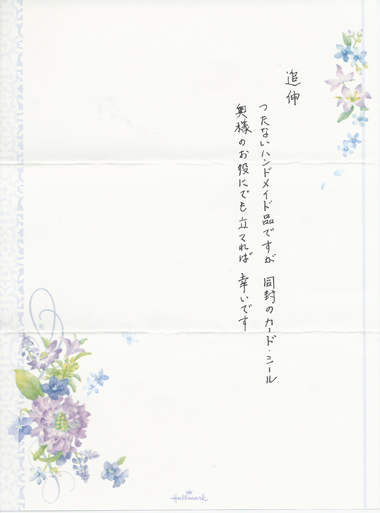 追伸
つたないハンドメイド品ですが 同封のカード・シール
奥様のお役にでも立てれば 幸いです
Hallmark